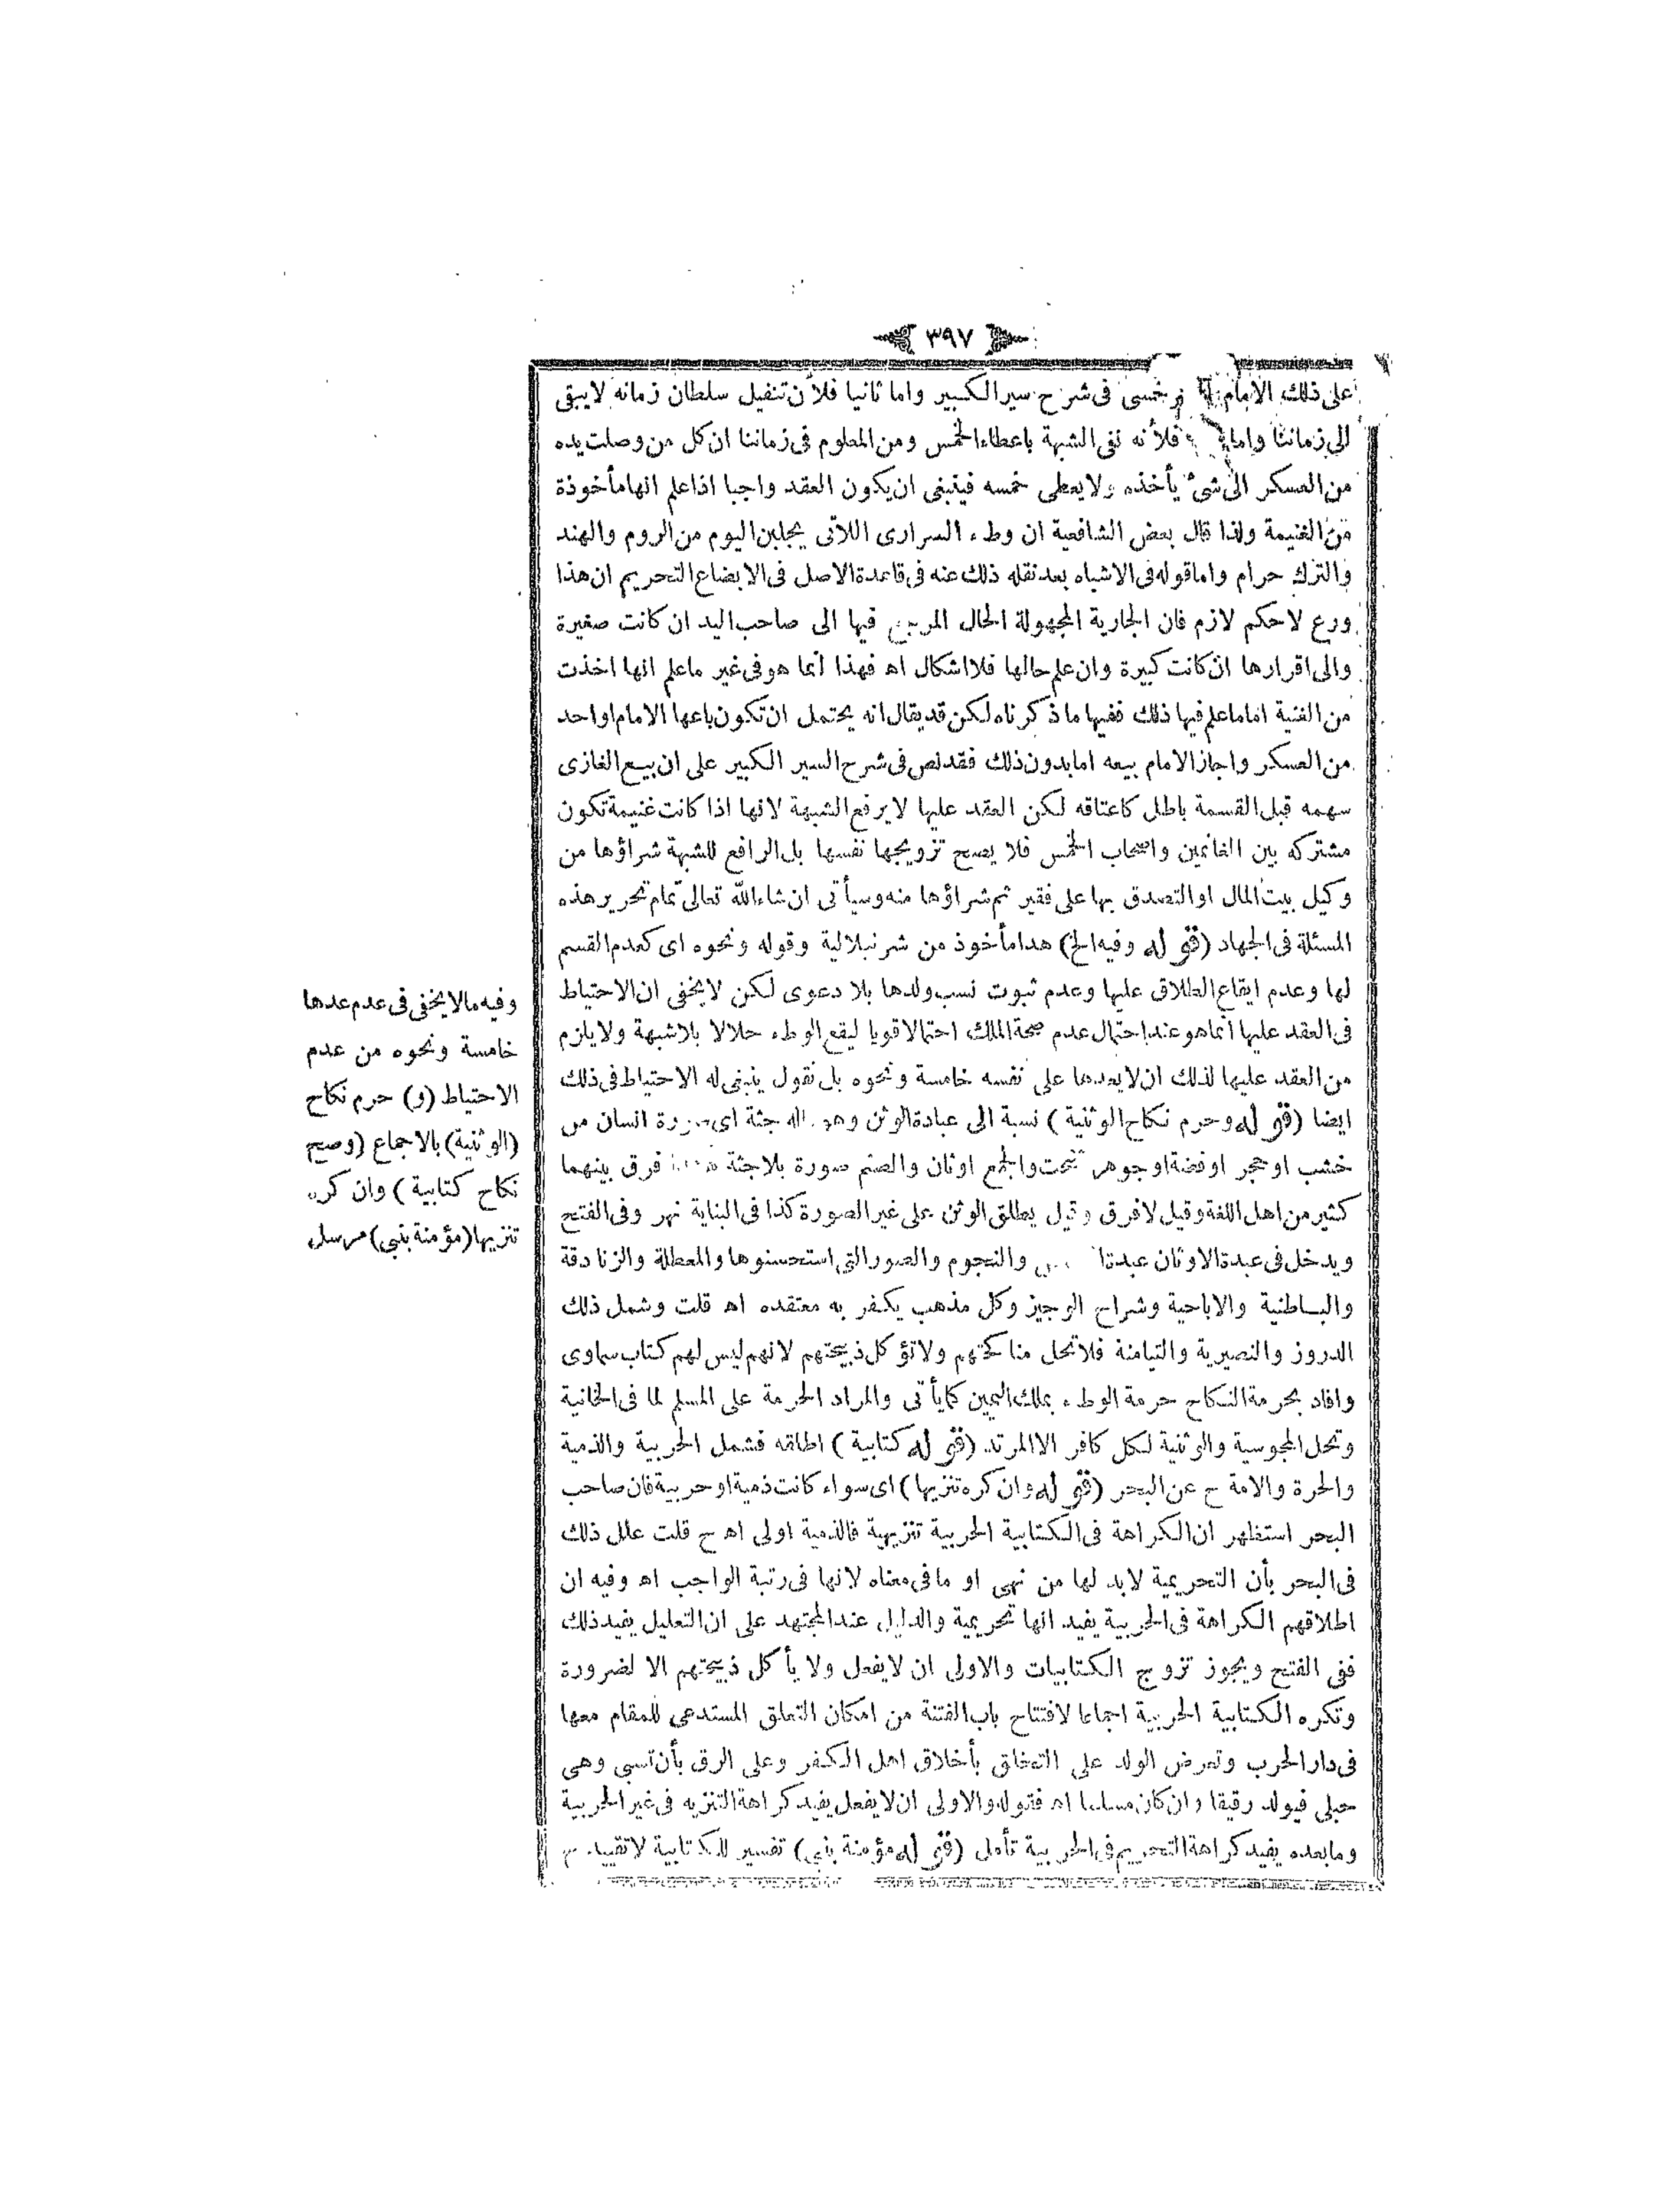 ٣٩٧
على ذلك الامام خسى فى شرح سير الكبير واما ثانيا فلأن تنفيل سلطان زمانه لايبقى
الى زماننا واما فلأنه نفى الشبهة باعطاء الخمس ومن المعلوم فى زماننا ان كل من وصلت يده
من العسكر الى شئ يأخذه ولا يعطى خمسه فينبغى ان يكون العقد واجبا اذا علم انها مأخوذة
من الغنيمة ولذا قال بعض الشافعية ان وطء السرارى اللاتى يجلبن اليوم من الروم والهند
والترك حرام واما قوله فى الاشباه بعد نقله ذلك عنه فى قاعدة الاصل فى الابضاع التحريم ان هذا
ورع لا حكم لازم فان الجارية المجهولة الحال المرجع فيها الى صاحب اليد ان كانت صغيرة
والى اقرارها ان كانت كبيرة وان علم حالها فلا اشكال اه فهذا انما هو فى غير ما علم انها اخذت
من الغنية اما ما علم فيها ذلك ففيها ما ذكرناه لكن قد يقال انه يحتمل ان تكون باعها الامام او احد
من العسكر واجاز الامام بيعه اما بدون ذلك فقد نص فى شرح السير الكبير على ان بيع الغازى
سهمه قبل القسمة باطل كاعتاقه لكن العقد عليها لا يرفع الشبهة لانها اذا كانت غنيمة تكون
مشتركه بين الغانمين واصحاب الخمس فلا يصح تزويجها نفسها بل الرافع للشبهة شراؤها من
وكيل بيت المال او التصدق بها على فقير ثم شراؤها منه وسيأتى ان شاء الله تعالى تمام تحرير هذه
المسئلة فى الجهاد (قوله وفيه الخ) هدا مأخوذ من شرنبلالية وقوله ونحوه اى كعدم القسم
لها وعدم ايقاع الطلاق عليها وعدم ثبوت نسب ولدها بلا دعوى لكن لا يخفى ان الاحتياط
فى العقد عليها انما هو عند احتمال عدم صحة الملك احتمالا قويا ليقع الوطء حلالا بلا شبهة ولا يلزم
من العقد عليها لذلك ان لا يعدها على نفسه خامسة ونحوه بل نقول ينبغى له الاحتياط فى ذلك
ايضا (قوله وحرم نكاح الوثنية) نسبة الى عبادة الوثن وهو ماله جثة اى صورة انسان من
خشب او حجر او فضة او جوهر تنحت والجمع اوثان والصنم صورة بلا جثة هكذا فرق بينهما
كثير من اهل اللغة وقيل لا فرق وقيل يطلق الوثن على غير الصورة كذا فى البناية نهر وفى الفتح
ويدخل فى عبدة الاوثان عبدة والنجوم والصور التى استحسنوها والمعطلة والزنادقة
والباطنية والاباحية وشراح الوجيز وكل مذهب يكفر به معتقده اه قلت وشمل ذلك
الدروز والنصيرية والتيامنة فلا تحل مناكحتهم ولا تؤكل ذبيحتهم لانهم ليس لهم كتاب سماوى
وافاد بحرمة النكاح حرمة الوطء بملك اليمين كما يأتى والمراد الحرمة على المسلم لما فى الخانية
وتحل المجوسية والوثنية لكل كافر الا المرتد (قوله كتابية) اطلقه فشمل الحربية والذمية
والحرة والامة ح عن البحر (قوله وان كره تنزيها) اى سواء كانت ذمية او حربية فان صاحب
البحر استظهر ان الكراهة فى الكتابية الحربية تنزيهية فالذمية اولى اه ح قلت علل ذلك
فى البحر بأن التحريمية لابد لها من نهى او ما فى معناه لانها فى رتبة الواجب اه وفيه ان
اطلاقهم الكراهة فى الحربية يفيد انها تحريمية والدليل عند المجتهد على ان التعليل يفيد ذلك
ففى الفتح ويجوز تزوج الكتابيات والاولى ان لا يفعل ولا يأكل ذبيحتهم الا لضرورة
وتكره الكتابية الحربية اجماعا لافتتاح باب الفتنة من امكان التعلق المستدعى للمقام معها
فى دار الحرب وتعرض الولد على التخلق بأخلاق اهل الكفر وعلى الرق بأن تسبى وهى
حبلى فيولد رقيقا وان كان مسلما اه فقوله والاولى ان لا يفعل يفيد كراهة التنزيه فى غير الحربية
وما بعده يفيد كراهة التحريم فى الحربية تأمل (قوله مؤمنة بنبى) تفسير للكتابية لا تقييد
وفيه مالا يخفى فى عدم عدها
خامسة ونحوه من عدم
الاحتياط (و) حرم نكاح
(الوثنية) بالاجماع (وصح
نكاح كتابية) وان كره
تنزيها (مؤمنة بنبى) مرسل